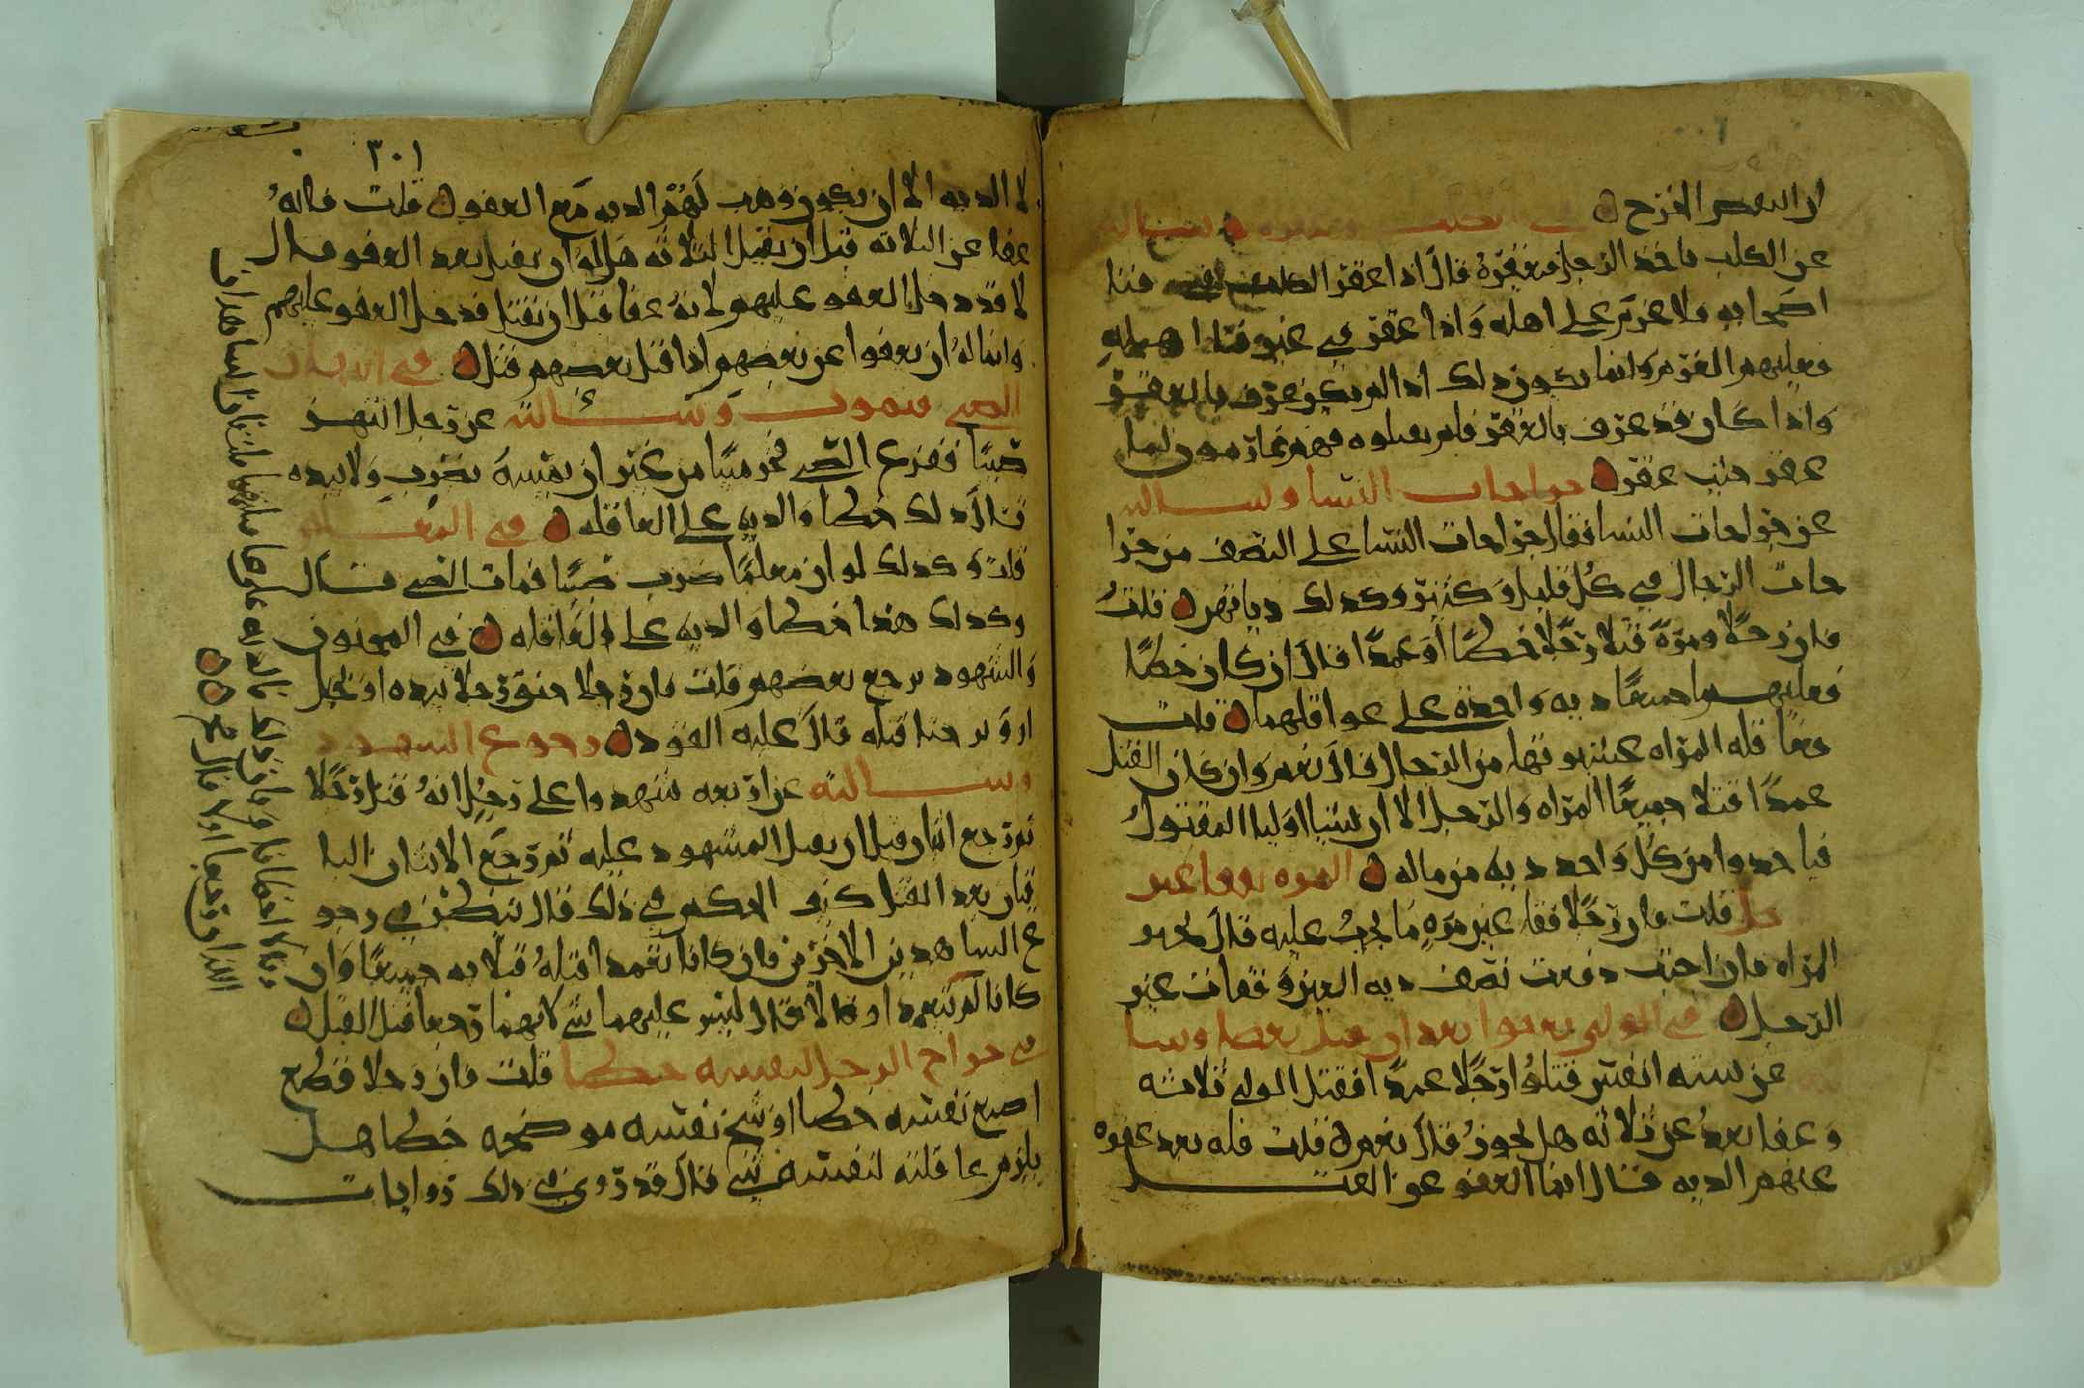 ان البعض الفزح في الكلب وعقره وسالته
عن الكلب ياخذ الرجل فيعقره قال اذا عقر الكلب في فنا
اصحابه فلا غرم على اهله واذا عقر في غير فنا اهله
فعليهم الغرم وانما يكون ذلك اذا لم يكن عرف بالعقر
واذا كان قد عرف بالعقر فلم يقتلوه فهم ضامنون لما
عقر حيث عقر جراحات النسا وسالته
عن جراحات النسا فقال جراحات النسا على النصف من جرا
حات الرجال في كل قليل وكثير وكذلك دياتهن قلت
فان رجلا ومرة قتلا رجلا خطا او عمدا قال ان كان خطا
فعليهما جميعا دية واحدة على عواقلهما قلت
وما قتله المراه كغيرها من الرجال قال نعم وان كان القتل
عمدا قتلا جميعا المراه والرجل الا ان يشا اوليا المقتول
فياخذوا من كل واحد دية من ماله المره تفقا عين
رجل قلت فان رجلا فقا عين مرة ما يجب عليه قال تخير
المراه فان احبت دفعت نصف دية العين وفقات عين
الرجل في الولي يعفوا بعد ان يقتل بعضا وسا
لته عن ستة انفس قتلوا رجلا عمدا فقتل الولي ثلاثة
وعفا بعد عن ثلاثة هل يجوز قال نعم قلت فله بعد عفوه
عنهم الدية قال انما العفو عن القتل
٣٠١
لا الدية الا ان يكون وهب لهم الدية مع العفو قلت فانه
عفا عن الثلاثة قبل ان يقتل الثلاثة هل له ان يقتل بعد العفو قال
لا قد دخل العفو عليهم لانه عفا قبل ان يقتل قد دخل العفو عليهم
وانما له ان يعفوا عن بعضهم اذا قتل بعضهم قتل في انتهار
الصبي فيموت وسالته عن رجل انتهر
صبيا ففزع الصبي فخر ميتا من غير ان يمسه بضرب ولا بيده
قال ذلك خطا والدية على العاقلة في المعلم
قلت وكذلك لو ان معلما ضرب صبيا فمات الصبي قال
وكذلك هذا خطا والدية على العاقلة في المجنون
والشهود يرجع بعضهم قلت فان رجلا خنق رجلا بيده او بحبل
او وتر حتا قتله قال عليه القود رجوع الشهود
وسالته عن اربعة شهدوا على رجل انه قتل رجلا
ثم رجع اثنان قبل ان يقتل المشهود عليه ثم رجع الاثنان البا
قيان بعد القتل كيف الحكم في ذلك قال ينظر في رجو
ع الشاهدين الاخرين فان كانا تعمدا قتله قتلا به جميعا وان
كانا لم يتعمدا وقالا ليس عليهما شي لانهما رجعا قبل القتل
في جراح الرجل لنفسه خطا قلت فان رجلا قطع
اصبع نفسه خطا او شج نفسه موضحة خطا هل
يلزم عاقلته لنفسه شي قال قد روي في ذلك روايات